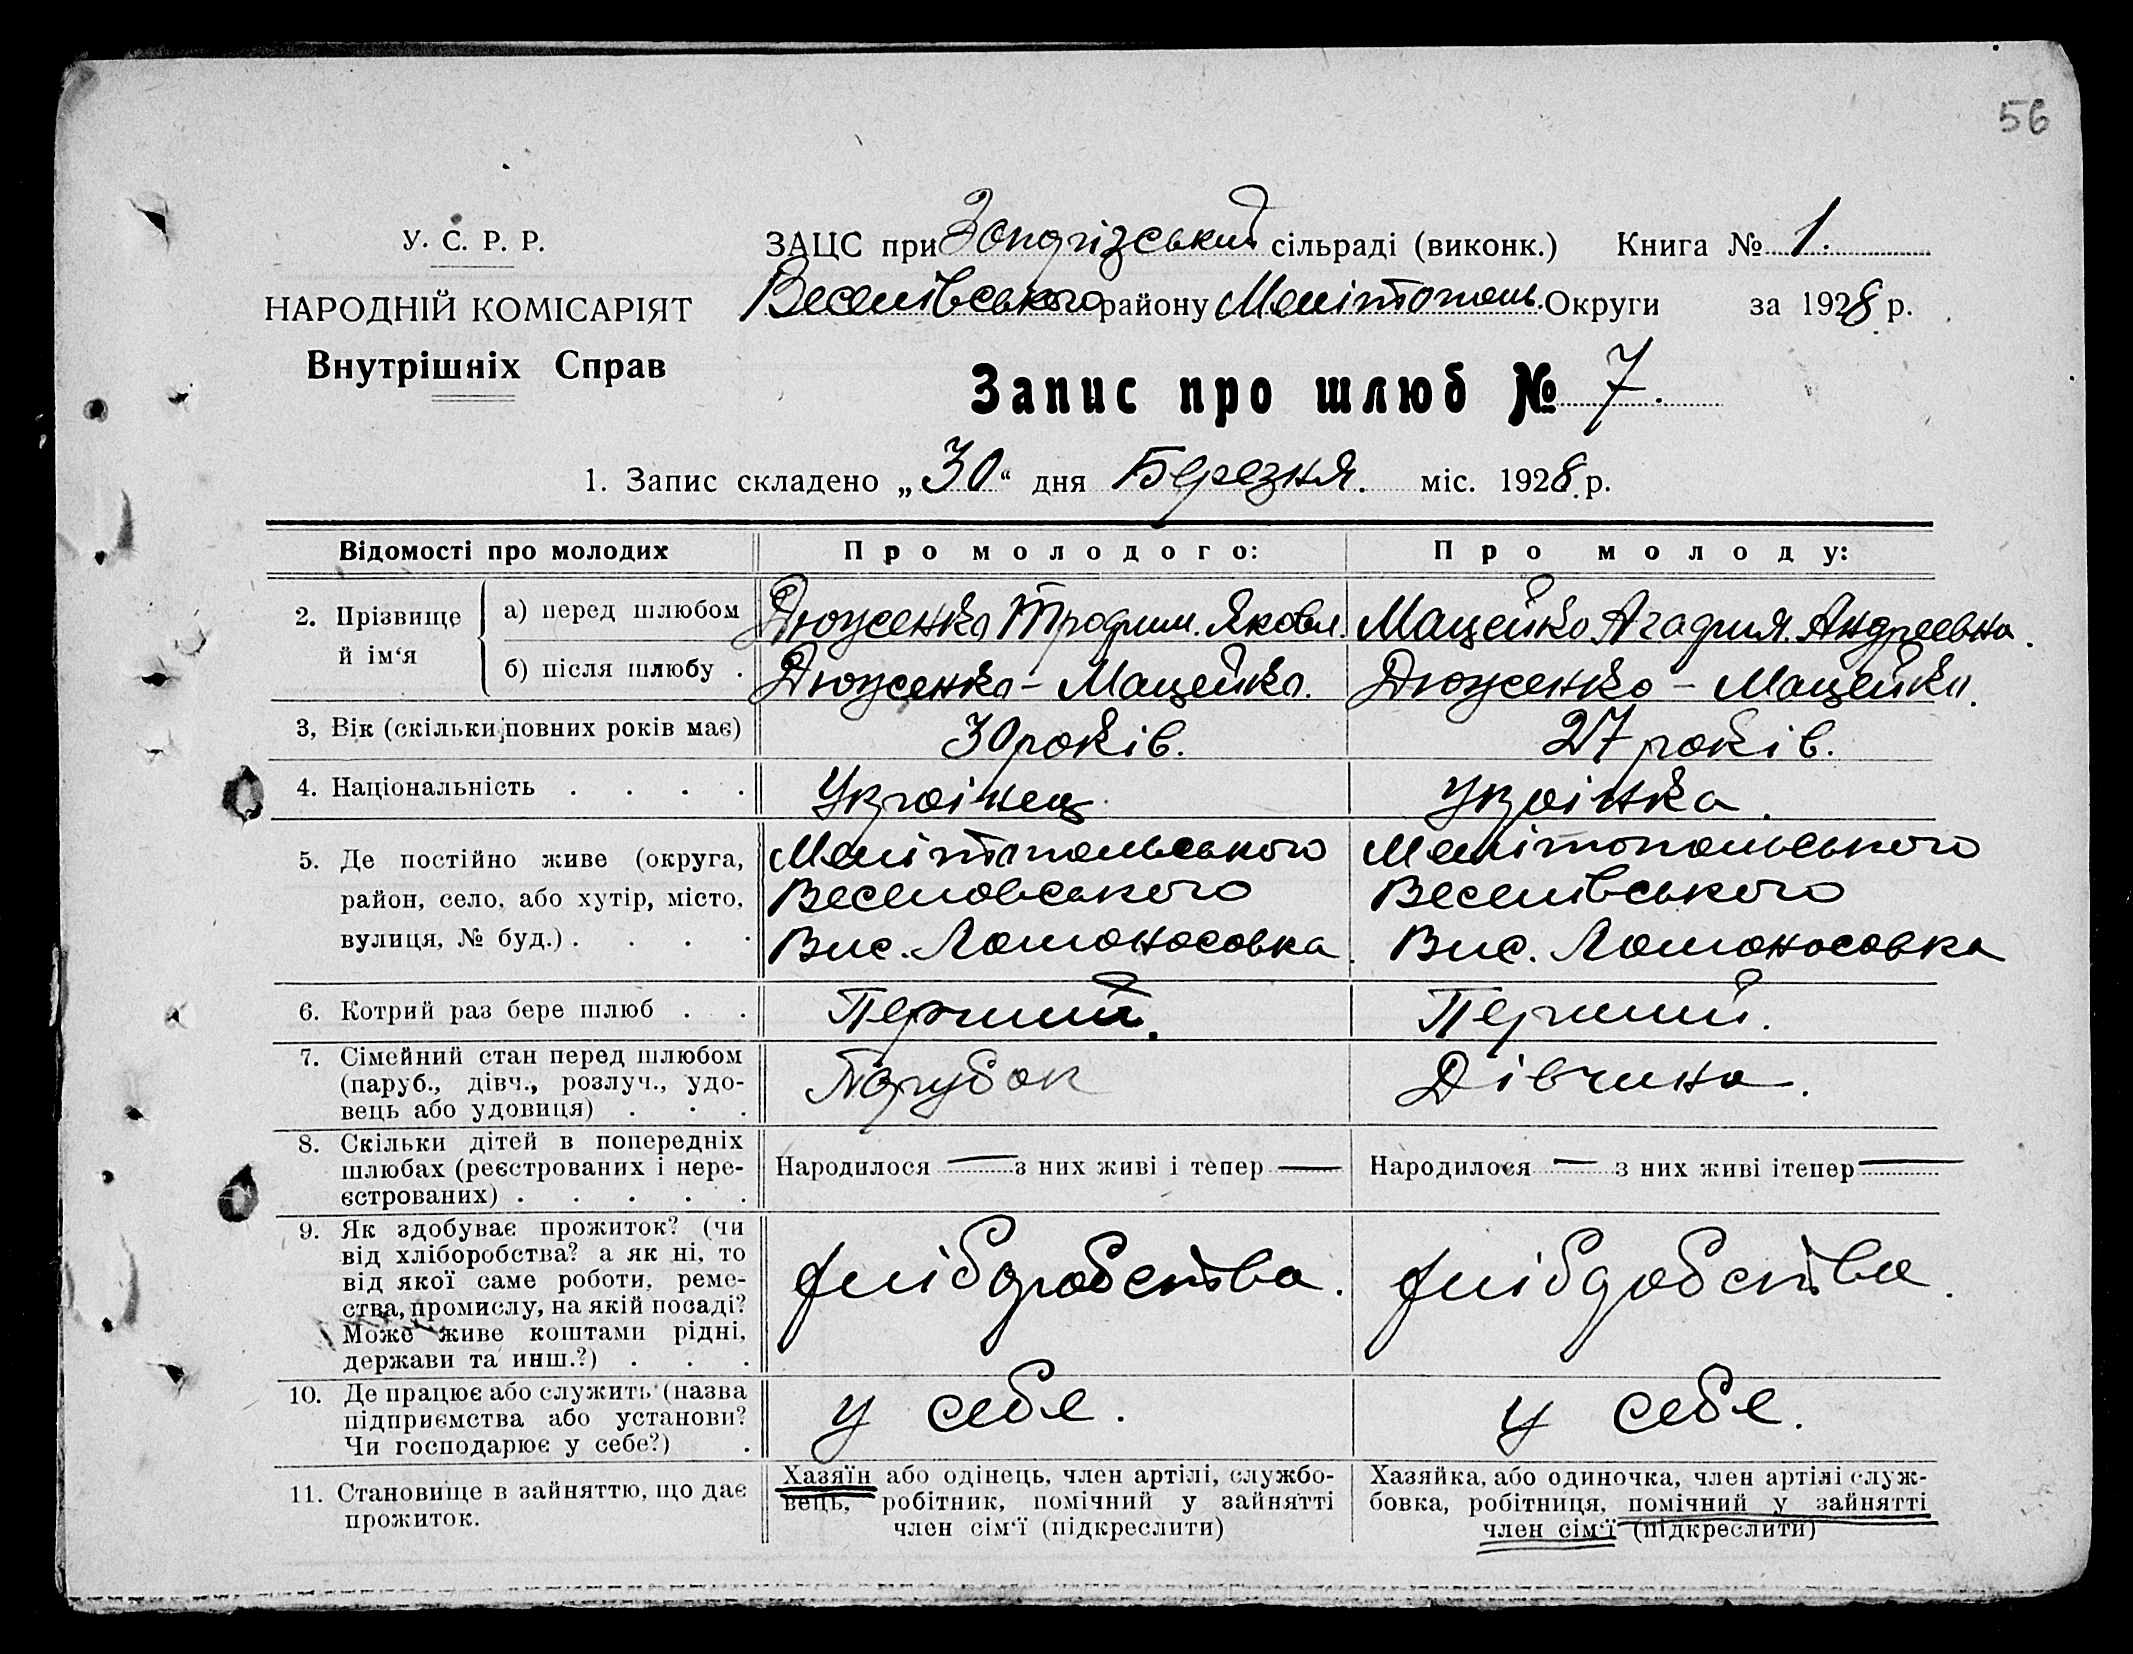 56
У. С. Р. Р.
НАРОДНІЙ КОМІСАРІЯТ
Внутрішніх Справ
ЗАЦС при сільраді (виконк.) Книга № 1.
Веселівського району Мелітополь. Округи за 1928 р.
Запис про шлюб № 7.
1. Запис складено „30“ дня Березня. міс. 1928 р.
Відомості про молодих
Про молодого:
Про молоду:
2. Прізвище й ім‘я
а) перед шлюбом
Дюженко Трофим. Яковл.
Мацейко Агафия. Андреевна.
б) після шлюбу .
Дюженко - Мацейко.
Дюженко - Мацейко.
3, Вік (скільки повних років має)
30 років.
27 років.
4. Національність . . . .
Українец
Українка.
5. Де постійно живе (округа,
район, село, або хутір, місто,
вулиця, № буд.) . . . .
Мелітопольського
Веселовського
Вис. Ломоносовка.
Мелітопольського
Веселівського
Вис. Ломоносовка
6. Котрий раз бере шлюб . .
Перший.
Перший.
7. Сімейний стан перед шлюбом
(паруб., дівч., розлуч., удо-
вець або удовиця) . . .
Парубок
Дівчина.
8. Скільки дітей в попередніх
шлюбах (реєстрованих і нере-
єстрованих) . . . . .
Народилося — з них живі і тепер —
Народилося — з них живі ітепер —
9. Як здобуває прожиток? (чи
від хліборобства? а як ні, то
від якої саме роботи, реме-
ства, промислу, на якій посаді?
Може живе коштами рідні,
держави та инш.?) . . .
хліборобства.
хліборобства.
10. Де працює або служить (назва
підприємства або установи?
Чи господарює у себе?) .
у себе.
у себе.
11. Становище в зайняттю, що дає
прожиток.
Хазяїн або одінець, член артілі, службо-
вець, робітник, помічний у зайнятті
член сім‘ї (підкреслити)
Хазяйка, або одиночка, член артілі служ-
бовка, робітниця, помічний у зайнятті
член сім‘ї (підкреслити)